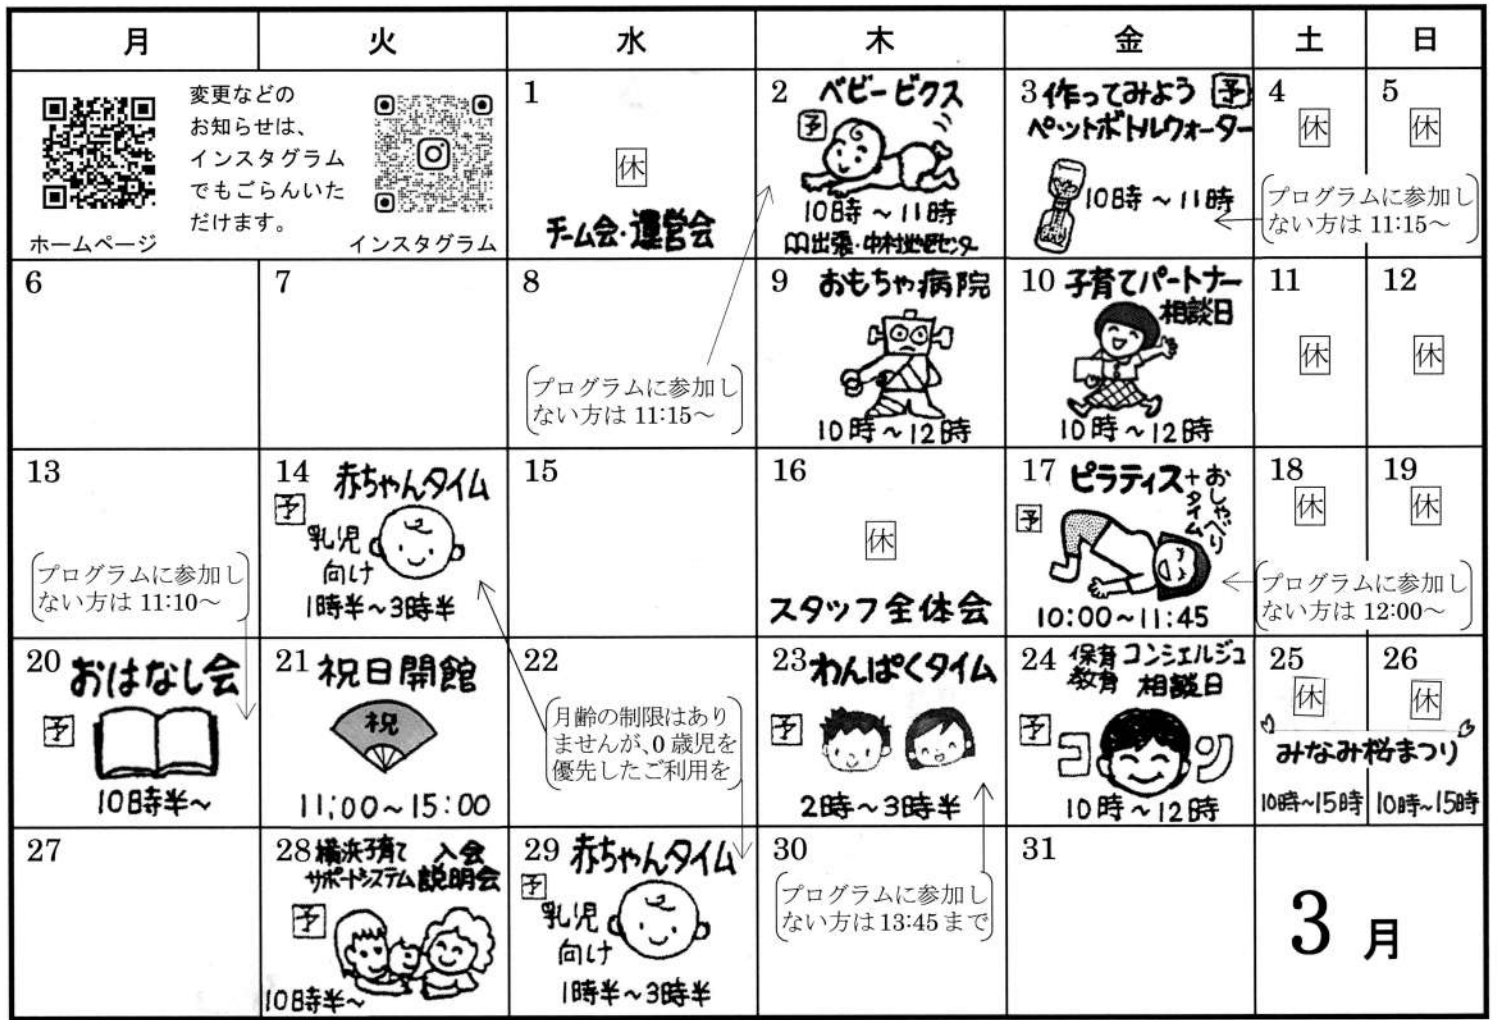 月 火 水 木 金 土 日
変更などの
お知らせは、
インスタグラム
でもごらんいた
だけます。
ホームページ
インスタグラム
1
休
チーム会・運営会
2 ベビービクス
予
10時～11時
出張・中村地区センター
3 作ってみよう 予
ペットボトルウォーター
10時～11時
4
休
5
休
プログラムに参加し
ない方は 11:15～
6
7
8
プログラムに参加し
ない方は 11:15～
9 おもちゃ病院
10時～12時
10 子育てパートナー
相談日
10時～12時
11
休
12
休
13
プログラムに参加し
ない方は 11:10～
14 赤ちゃんタイム
予
乳児
向け
1時半～3時半
15
16
休
スタッフ全体会
17 ピラティス+おしゃべり
タイム
予
10:00～11:45
18
休
19
休
プログラムに参加し
ない方は 12:00～
20 おはなし会
予
10時半～
21 祝日開館
祝
11:00～15:00
22
月齢の制限はあり
ませんが、0歳児を
優先したご利用を
23 わんぱくタイム
予
2時～3時半
24 保育 コンシェルジュ
教育 相談日
予
コン
10時～12時
25
休
26
休
みなみ桜まつり
10時～15時 10時～15時
27
28 横浜子育て 入会
サポートシステム 説明会
予
10時半～
29 赤ちゃんタイム
予
乳児
向け
1時半～3時半
30
プログラムに参加し
ない方は13:45まで
31
3月